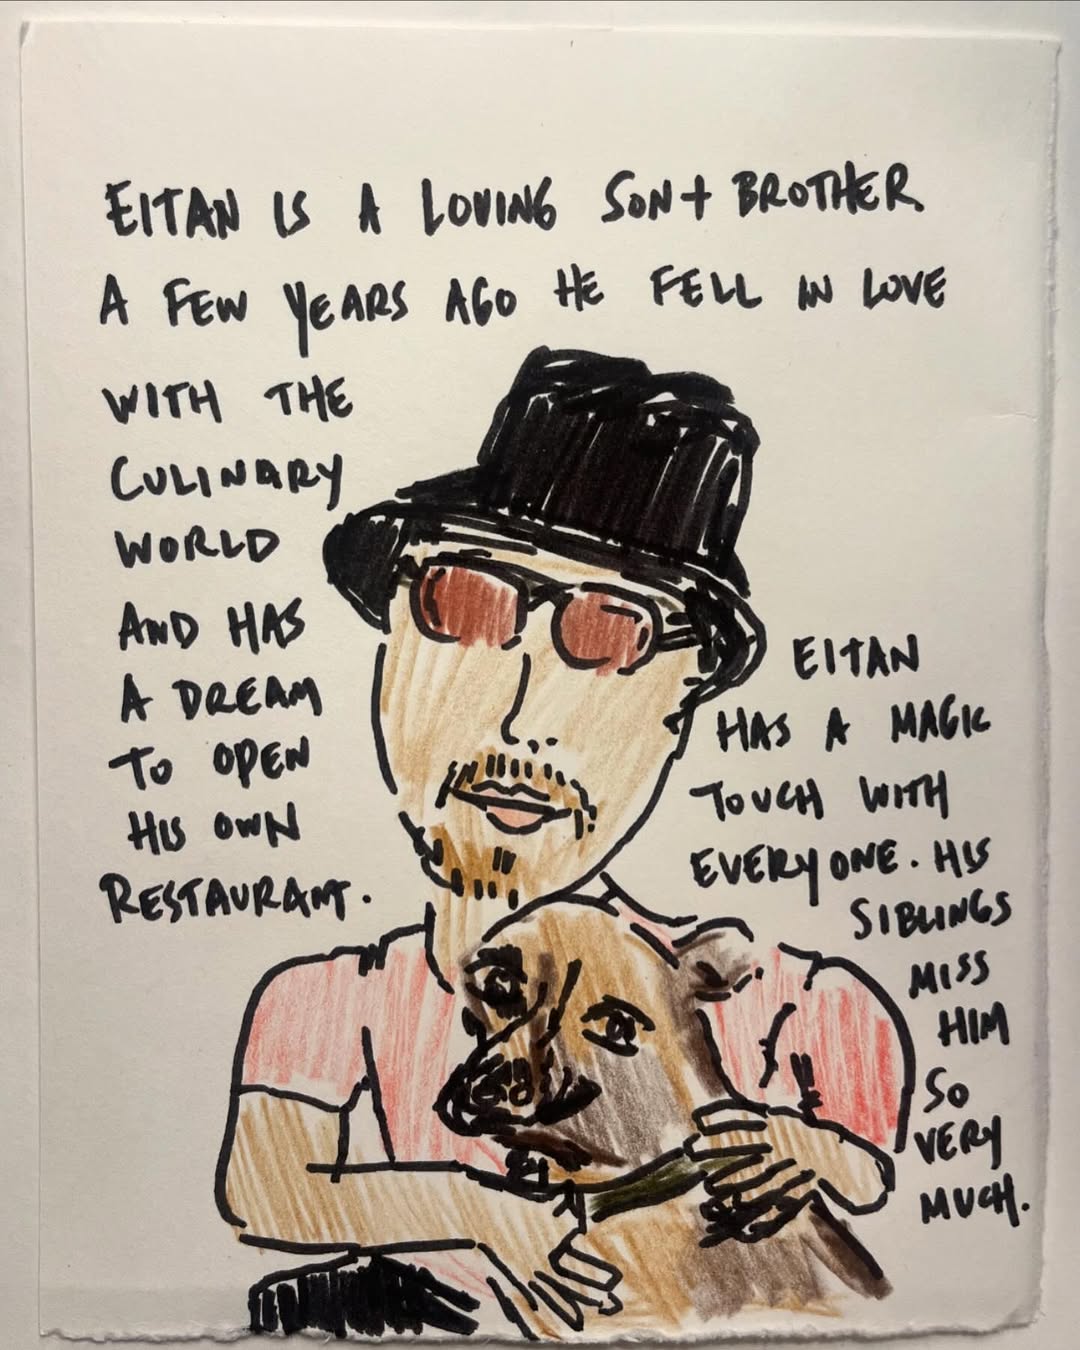 EITAN IS A LOVING SON + BROTHER.
A FEW YEARS AGO HE FELL IN LOVE
WITH THE
CULINARY
WORLD
AND HAS
A DREAM
TO OPEN
HIS OWN
RESTAURANT.
EITAN
HAS A MAGIC
TOUCH WITH
EVERYONE. HIS
SIBLINGS
MISS
HIM
SO
VERY
MUCH.